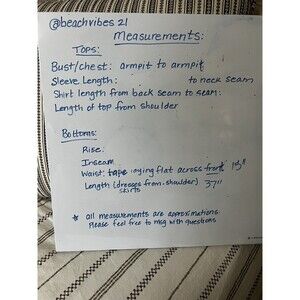 @beachvibes21
Measurements:
Tops:
Bust/chest: armpit to armpit
Sleeve Length: to neck seam
Shirt length from back seam to seam:
Length of top from shoulder
Bottoms:
Rise:
Inseam
Waist: tape laying flat across front 15"
Length (dresses from shoulder) 37"
skirts
* all measurements are approximations.
Please feel free to msg with questions